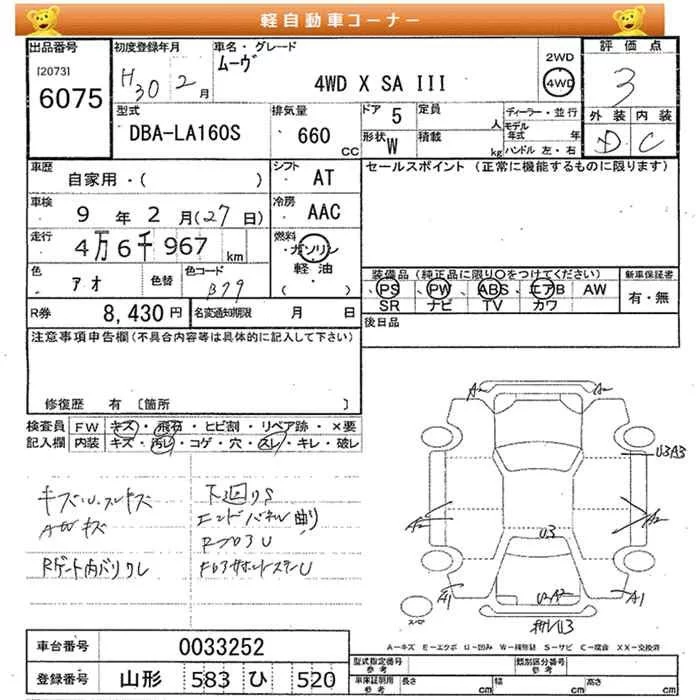 軽自動車コーナー
出品番号
[2073]
6075
初度登録年月
H30 2月
車名・グレード
ムーヴ
4WD X SA III
2WD
4WD
評価点
3
外装 内装
D C
型式
DBA-LA160S
排気量
660 CC
ドア 5
定員 人
形状 W
積載 kg
ディーラー・並行
モデル年式 年
ハンドル 左・右
車歴
自家用・( )
シフト
AT
セールスポイント (正常に機能するものに限ります)
車検
9 年 2 月(27日)
冷房
AAC
走行
4万6千967 km
燃料
ガソリン
軽油
・( )
色
アオ
色替
色コード
B79
装備品(純正品に限り○をつけてください)
PS、PW、ABS、エアB AW
SR ナビ TV カワ
新車保証書
有・無
R券
8,430円
名変通知期限 月 日
後日品
注意事項申告欄(不具合内容等は具体的に記入して下さい)
修復歴 有 〔箇所 〕
検査員記入欄
FW キズ・飛石・ヒビ割・リペア跡・×要
内装 キズ・汚レ・コゲ・穴・スレ・キレ・破レ
キズU.スレキズ
下廻りS
エンドパネル曲り
Rゲート内バリワレ
A2 A2
U3A3
A2 A2
U3
A1 U2A2 A1
スペア
A-キズ E-エクボ U-凹み W-補修跡 S-サビ C-腐蝕 XX-交換済
車台番号 0033252
登録番号 山形 583 ひ 520
型式指定番号 参考
類別区分番号 参考
車庫証明用 参考 長さ cm 幅 cm 高さ cm